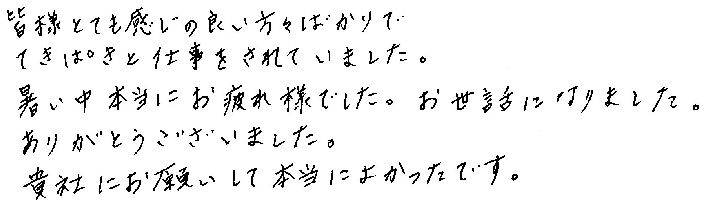 皆様とても感じの良い方々ばかりで
てきぱきと仕事をされていました。
暑い中本当にお疲れ様でした。お世話になりました。
ありがとうございました。
貴社にお願いして本当によかったです。